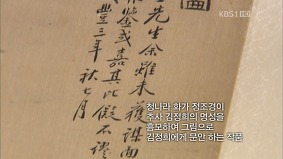 KBS1 HD
先生余雖未獲謀面
鑒或嘉其
豐三年秋七月
청나라 화가 정조경이
추사 김정희의 명성을
흠모하여 그림으로
김정희에게 문안 하는 작품